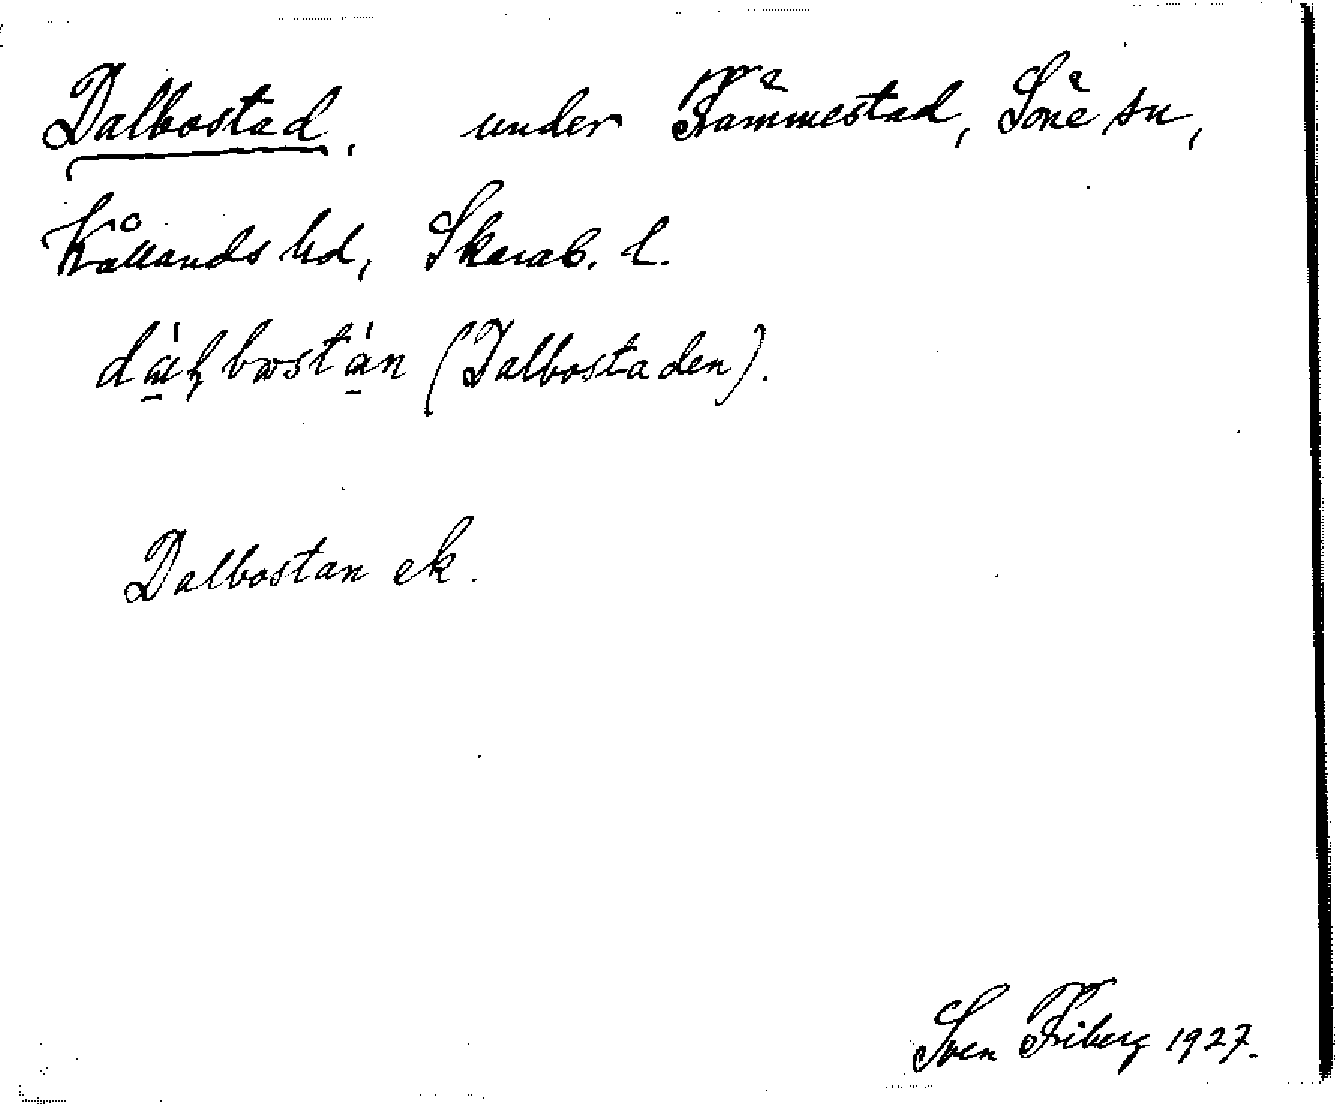 Dalbostad, under Främmestad, Söne sn,
Kållands hd, Skarab. l.
dàɫbωstàn (Dalbostaden).
Dalbostan ek.
Sven Friberg 1927.